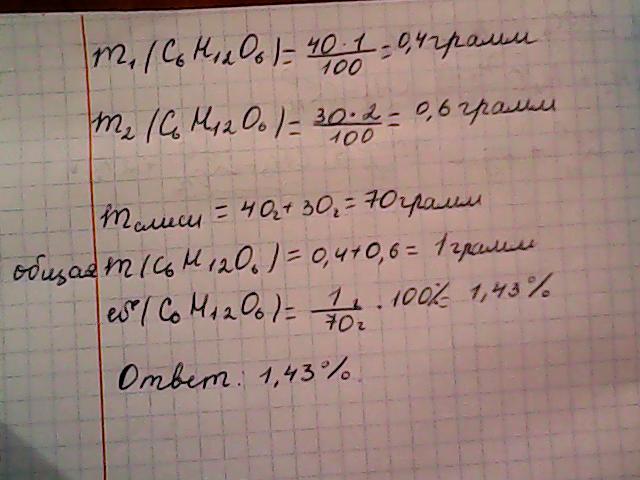 m₁(C₆H₁₂O₆) = 40·1/100 = 0,4 грамм
m₂(C₆H₁₂O₆) = 30·2/100 = 0,6 грамм
mсмеси = 40г + 30г = 70 грамм
общая m(C₆H₁₂O₆) = 0,4+0,6 = 1 грамм
ω(C₆H₁₂O₆) = 1г/70г · 100% = 1,43%
Ответ: 1,43%.